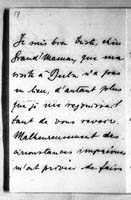 57
Je suis bien triste, chère
Grand'Maman, que ma
visite à n'a pas
eu lieu, d'autant plus
que je me réjouissais
tant de vous revoir.
Malheureusement des
circonstances imprévues
m'ont privée de faire